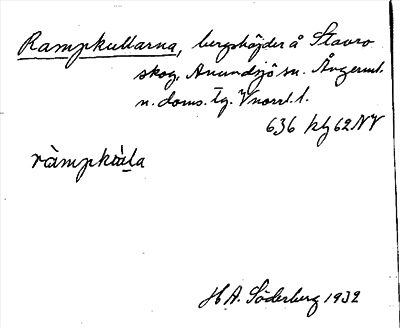 Rampkullarna, bergshöjder å Stavro
skog, Anundsjö sn. Ångerml.
n. doms. tg. Vnorrl. l.
636 kbg 62 NV
ràmpkùla
H A. Söderberg 1932